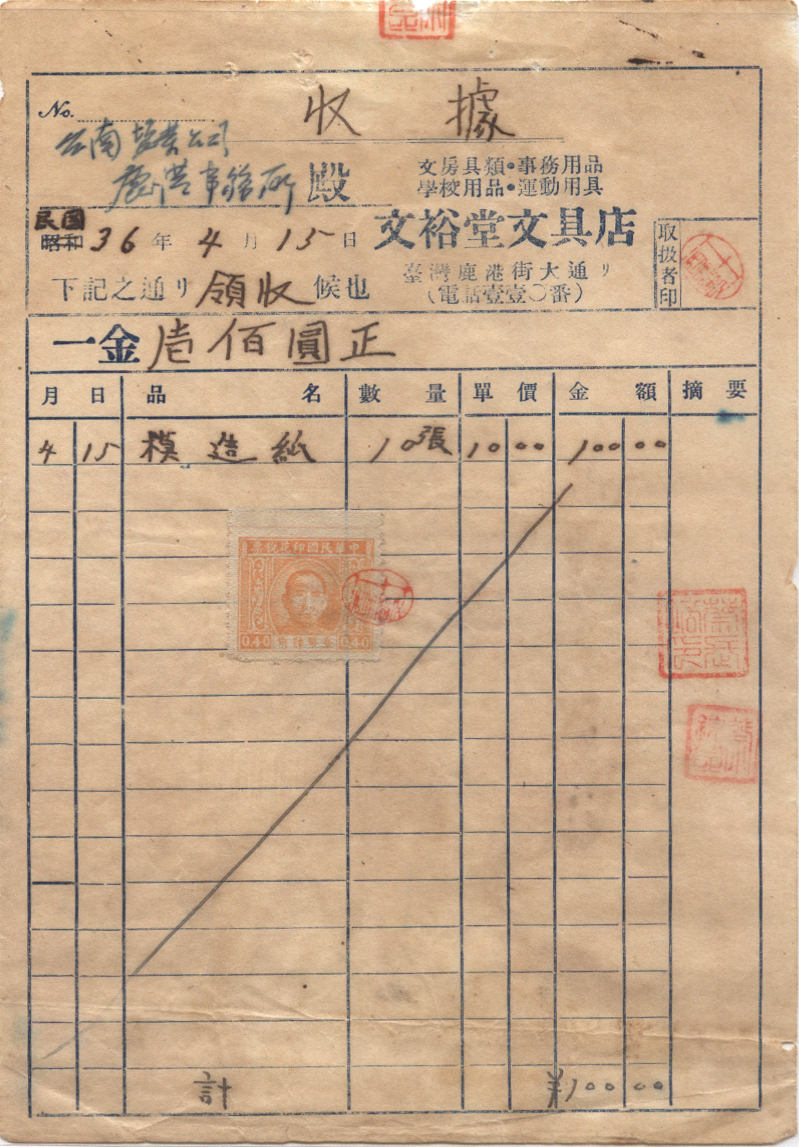 收據
No.
台南塩業公司
鹿港事務所 殿
文房具類・事務用品
學校用品・運動用具
民国
昭和 36 年 4 月 15 日
文裕堂文具店
臺灣鹿港街大通リ
(電話壹壹〇番)
取扱者印
下記之通リ領收候也
一金壱佰圓正
月 日 品名 數量 單價 金額 摘要
4 15 模造紙 10張 10 00 100 00
中華民國印花稅票
0.40 0.40
計 ¥100 00